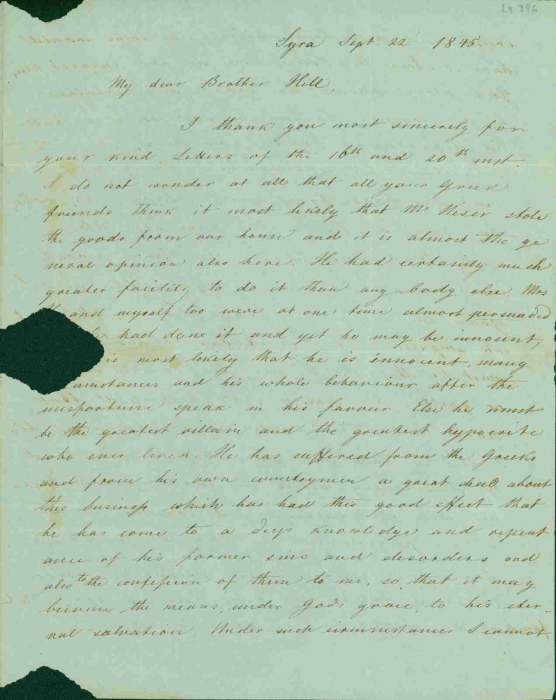 Syra Sept 22 1845
My dear Brother Hill,
I thank you most sincerely for
your kind Letters of the 16th and 20th inst.
I do not wonder at all that all your Greek
friends think it most likely that Mr stole
the goods from our house and it is almost the ge
neral opinion also here. He had certainly much
greater facility to do it than any body else. Mrs
and myself too were at one time almost persuaded
had done it and yet he may be innocent,
is most likely that he is innocent. many
umstances and his whole behaviour after the
misfortune speak in his favour Else he must
be the greatest villain and the greatest hypocrite
who ever lived. He has suffered from the Greeks
and from his own countrymen a great deal about
this business which has had this good effect that
he has come to a deep knowledge and repent
ance of his former sins and disorders and
also to the confession of them to me, so that it may
become the means, under Gods grace, to his eter
nal salvation. Under such circumstances I cannot